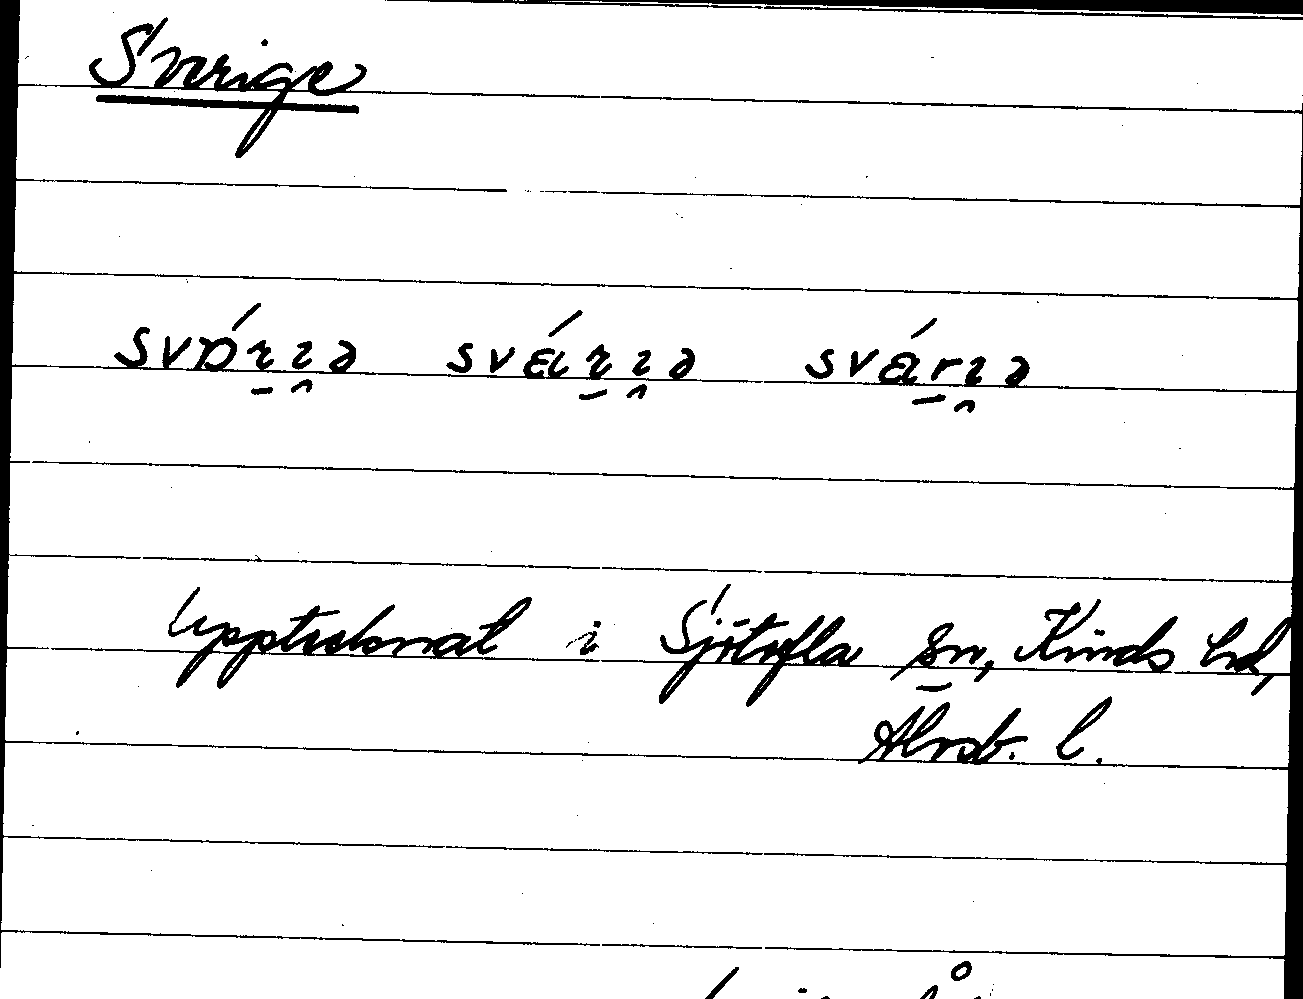 Sverige
svɒ́ɿ̠ı̯ə svǽɿ̠ı̯ə svǽr̠ı̯ə
Upptecknat i Sjötofta sn, Kinds hd,
Älvsb. l.